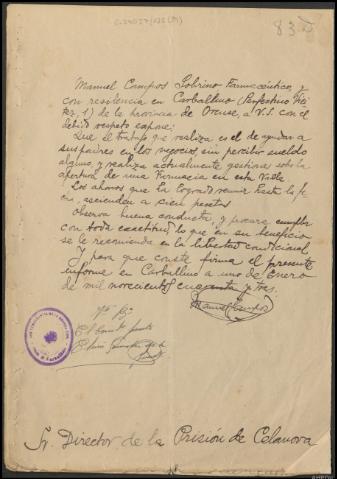 83
Manuel Campos Sobrino Farmacéutico, y
con residencia en Carballino
1) de la provincia de Orense, a V.S. con el
debido respeto expone:
Que el trabajo que realiza es el de ayudar a
sus padres en los negocios sin percibir sueldo
alguno, y realiza actualmente gestiones sobre la
apertura de una Farmacia en esta Valle
Los ahorros que ha logrado reunir hasta la fe
cha, ascienden a cien pesetas
Observa buena conducta, y procura cumplir
con toda exactitud lo que en su beneficio
se le recomienda en la libertad condicional
Y para que conste firma el presente
informe en Carballino a uno de Enero
de mil novecientos cincuenta y tres.
Manuel Campos
Vº Bº
El
El
Sr. Director de la Prisión de Celanova